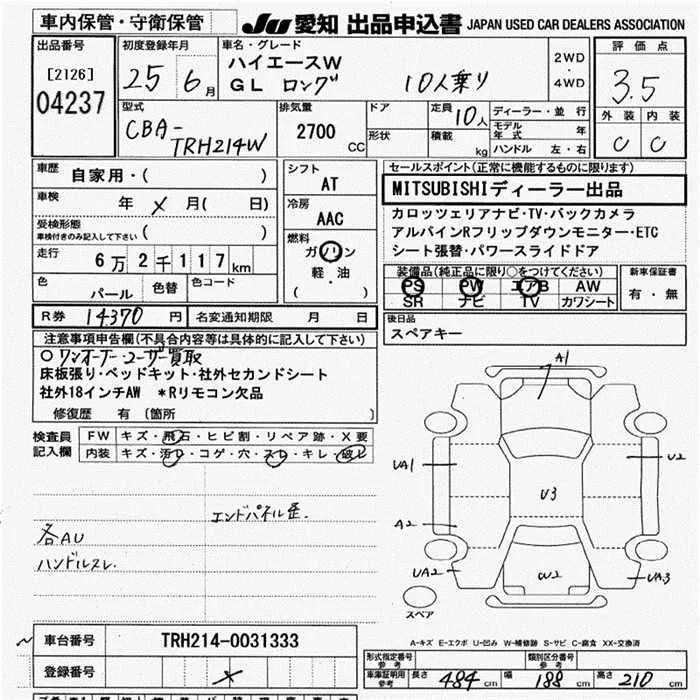 車内保管・守衛保管
JU 愛知 出品申込書 JAPAN USED CAR DEALERS ASSOCIATION
出品番号
[2126]
04237
初度登録年月
25年 6月
車名・グレード
ハイエースW
GL ロング 10人乗り
2WD
・
4WD
評価点
3.5
外装 内装
C C
型式
CBA-
TRH214W
排気量
2700 CC
ドア
形状
定員 10人
積載 kg
ディーラー・並行
モデル年式 年
ハンドル 左・右
車歴
自家用・( )
車検
年 × 月( 日)
受検形態
車検付きのみ記入して下さい ( )
走行
6万2千117km
色
パール
色替
色コード
シフト
AT
冷房
AAC
燃料
ガソリン
軽・油
( )
セールスポイント(正常に機能するものに限ります)
MITSUBISHIディーラー出品
カロッツェリアナビ・TV・バックカメラ
アルパインRフリップダウンモニター・ETC
シート張替・パワースライドドア
装備品(純正品に限り○をつけてください)
PS PW エアB AW
SR ナビ TV カワシート
新車保証書
有・無
R券 14370 円 名変通知期限 月 日
後日品
スペアキー
注意事項申告欄(不具合内容等は具体的に記入して下さい)
○ワンオーナー・ユーザー買取
床板張り・ベッドキット・社外セカンドシート
社外18インチAW *Rリモコン欠品
修復歴 有 〔箇所 〕
検査員
記入欄
FW キズ・飛石・ヒビ割・リペア跡・X要
内装 キズ・汚レ・コゲ・穴・スレ・キレ・破レ
エンドパネル歪.
各AU
ハンドルスレ.
A1
UA1
U2
U3
A2
UA2
W2
UA3
スペア
A-キズ E-エクボ U-凹み W-補修跡 S-サビ C-腐食 XX-交換済
車台番号 TRH214-0031333
登録番号 ×
形式指定番号
参考
類別区分番号
参考
車庫証明用
参考
長さ 484 cm 幅 188 cm 高さ 210 cm